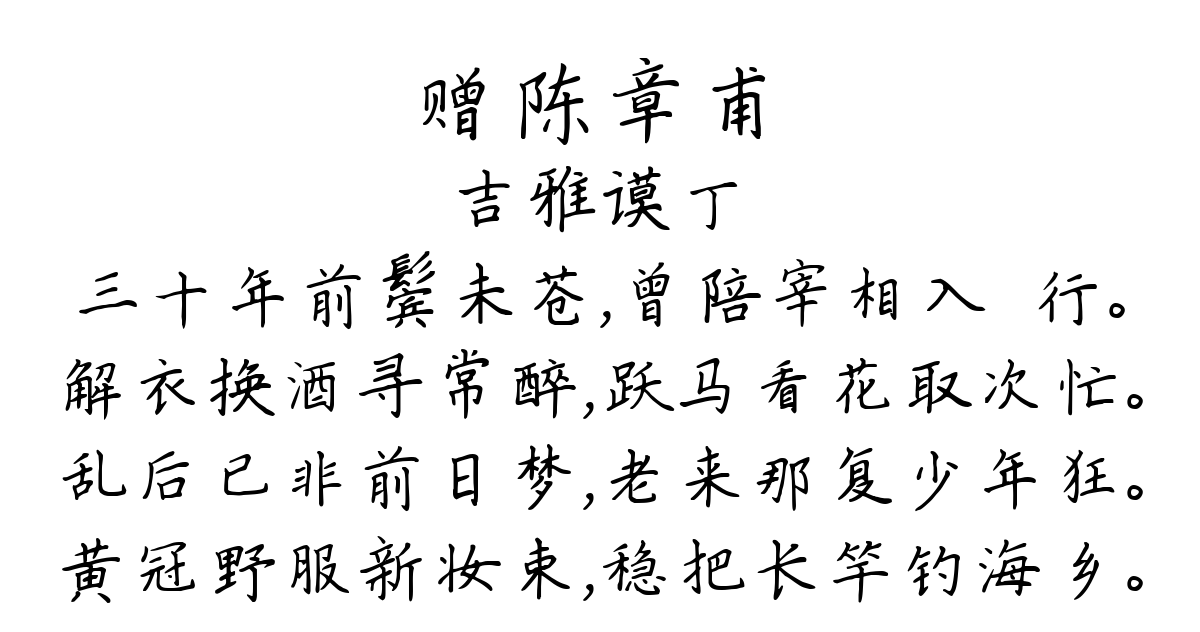 赠陈章甫
吉雅谟丁
三十年前鬓未苍,曾陪宰相入 行。
解衣换酒寻常醉,跃马看花取次忙。
乱后已非前日梦,老来那复少年狂。
黄冠野服新妆束,稳把长竿钓海乡。